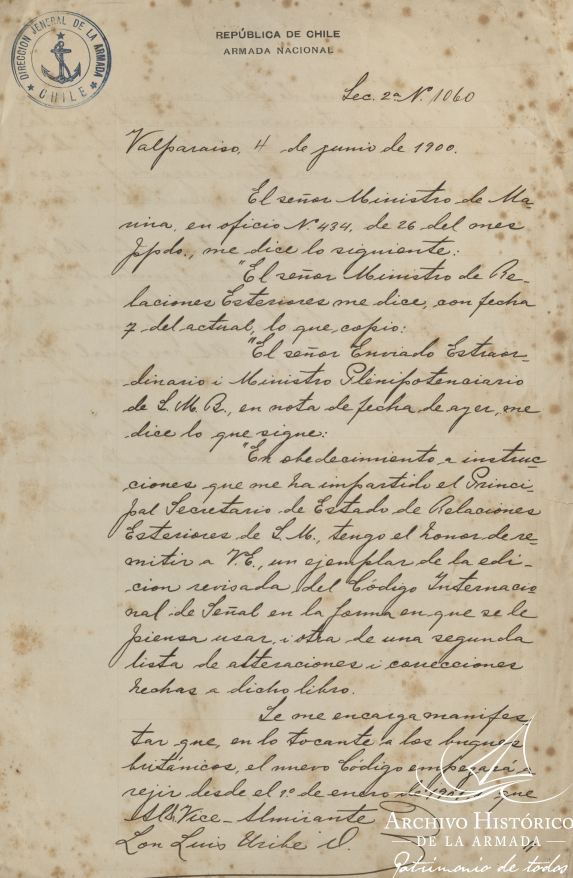 DIRECCION JENERAL DE LA ARMADA
CHILE
REPÚBLICA DE CHILE
ARMADA NACIONAL
Sec. 2a N. 1060
Valparaiso, 4 de junio de 1900.
El señor Ministro de Ma-
rina, en oficio N. 434, de 26 del mes
ppdo., me dice lo siguiente:
"El señor Ministro de Re-
laciones Esteriores me dice, con fecha
7 del actual, lo que copio:
"El señor Enviado Estraor-
dinario i Ministro Plenipotenciario
de S. M. B., en nota de fecha de ayer, me
dice lo que sigue:
"En obedecimiento a instruc-
ciones que me ha impartido el Princi-
pal Secretario de Estado de Relaciones
Esteriores de S. M., tengo el honor de re-
mitir a V.E., un ejemplar de la edi-
cion revisada del Código Internacio-
nal de Señal en la forma en que se le
piensa usar, i otra de una segunda
lista de alteraciones i correcciones
hechas a dicho libro.
Se me encarga manifes-
tar que, en lo tocante a los buques
británicos, el nuevo Código empezará a
rejir desde el 1º de enero de 1901, i que
Vice-Almirante
Don Luis Uribe O.
ARCHIVO HISTÓRICO
DE LA ARMADA
Patrimonio de todos